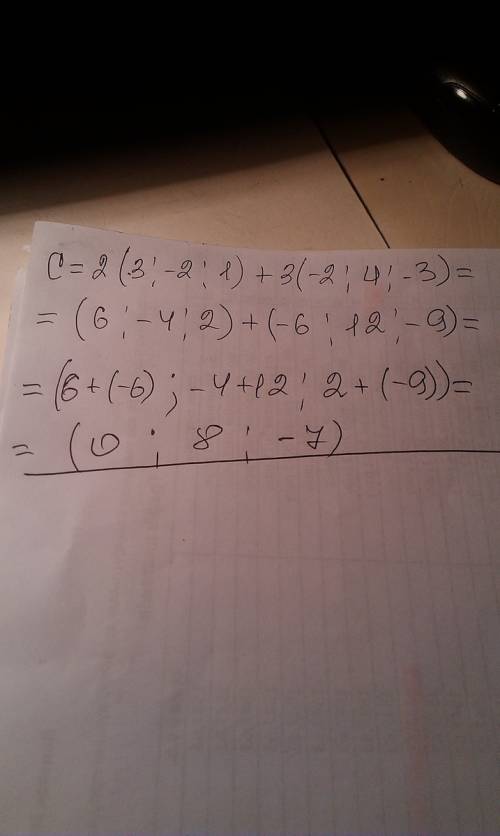 C = 2 (3 ; -2 ; 1) + 3(-2 ; 4 ; -3) =
= (6 ; -4 ; 2) + (-6 ; 12 ; -9) =
= (6 + (-6) ; -4+12 ; 2 + (-9)) =
= (0 ; 8 ; -7)